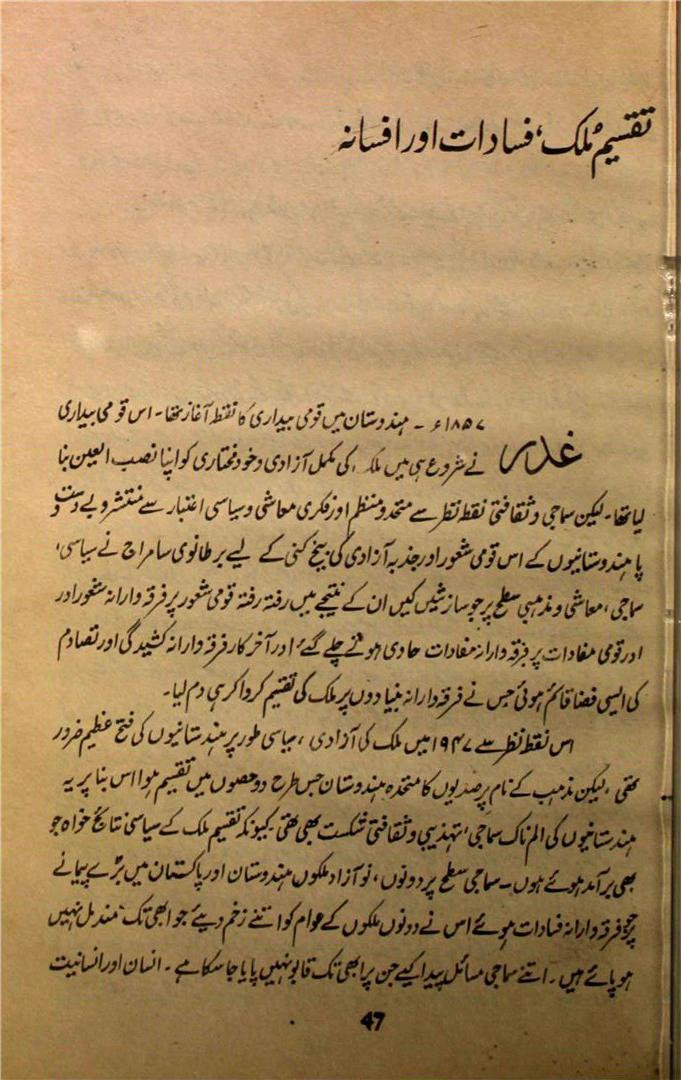 تقسیمِ مُلک، فسادات اور افسانہ
غدر ۱۸۵۷ء ۔ ہندوستان میں قومی بیداری کا نقطۂ آغاز تھا۔ اس قومی بیداری
نے شروع ہی میں ملک کی مکمل آزادی و خود مختاری کو اپنا نصب العین بنا
لیا تھا۔ لیکن سماجی و ثقافتی نقطۂ نظر سے متحد و منظم اور فکری معاشی و سیاسی اعتبار سے منتشر و بے دست و
پا ہندوستانیوں کے اس قومی شعور اور جذبہ آزادی کی بیخ کنی کے لیے برطانوی سامراج نے سیاسی،
سماجی، معاشی و مذہبی سطح پر جو سازشیں کیں ان کے نتیجے میں رفتہ رفتہ قومی شعور پر فرقہ وارانہ شعور اور
اور قومی مفادات پر فرقہ وارانہ مفادات حاوی ہوتے چلے گئے اور آخر کار فرقہ وارانہ کشیدگی اور تصادم
کی ایسی فضا قائم ہوئی جس نے فرقہ وارانہ بنیادوں پر ملک کی تقسیم کروا کر ہی دم لیا۔
اس نقطۂ نظر سے ۱۹۴۷ میں ملک کی آزادی، سیاسی طور پر ہندستانیوں کی فتح عظیم ضرور
تھی، لیکن مذہب کے نام پر صدیوں کا متحدہ ہندوستان جس طرح دو حصوں میں تقسیم ہوا اس بنا پر یہ
ہندستانیوں کی الم ناک سماجی، تہذیبی و ثقافتی شکست بھی تھی کیونکہ تقسیم ملک کے سیاسی نتائج خواہ جو
بھی برآمد ہوئے ہوں۔ سماجی سطح پر دونوں، نو آزاد ملکوں ہندوستان اور پاکستان میں بڑے پیمانے
پر جو فرقہ وارانہ فسادات ہوئے اس نے دونوں ملکوں کے عوام کو اتنے زخم دیئے جو ابھی تک مندمل نہیں
ہو پائے ہیں۔ اتنے سماجی مسائل پیدا کیے جن پر ابھی تک قابو نہیں پایا جا سکا ہے۔ انسان اور انسانیت
47